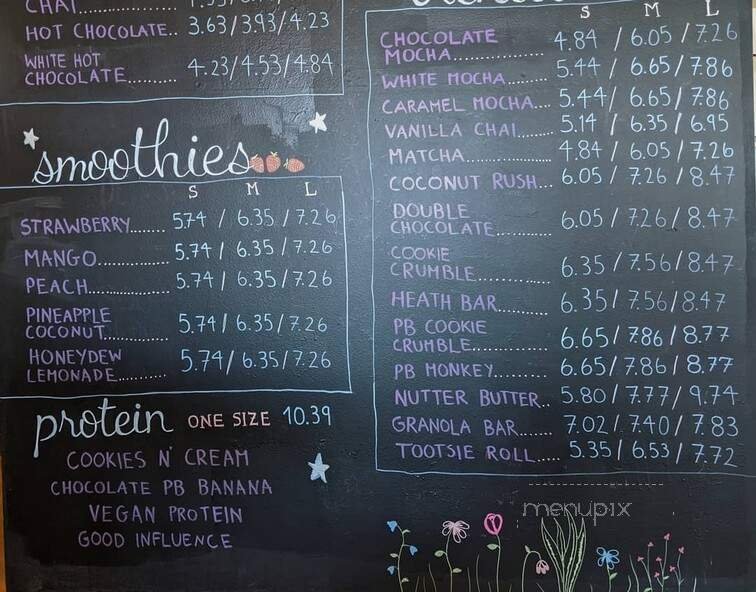 HOT CHOCOLATE.. 3.63/3.93/4.23
WHITE HOT
CHOCOLATE........ 4.23/4.53/4.84
smoothies
S M L
STRAWBERRY....... 5.74 / 6.35 / 7.26
MANGO............. 5.74 / 6.35 / 7.26
PEACH............. 5.74 / 6.35 / 7.26
PINEAPPLE
COCONUT........... 5.74 / 6.35 / 7.26
HONEYDEW
LEMONADE.......... 5.74 / 6.35 / 7.26
protein ONE SIZE 10.39
COOKIES N' CREAM
CHOCOLATE PB BANANA
VEGAN PROTEIN
GOOD INFLUENCE
S M L
CHOCOLATE
MOCHA............. 4.84 / 6.05 / 7.26
WHITE MOCHA....... 5.44 / 6.65 / 7.86
CARAMEL MOCHA.... 5.44 / 6.65 / 7.86
VANILLA CHAI...... 5.14 / 6.35 / 6.95
MATCHA............ 4.84 / 6.05 / 7.26
COCONUT RUSH... 6.05 / 7.26 / 8.47
DOUBLE
CHOCOLATE......... 6.05 / 7.26 / 8.47
COOKIE
CRUMBLE........... 6.35 / 7.56 / 8.47
HEATH BAR......... 6.35 / 7.56 / 8.47
PB COOKIE
CRUMBLE........... 6.65 / 7.86 / 8.77
PB MONKEY......... 6.65 / 7.86 / 8.77
NUTTER BUTTER.. 5.80 / 7.77 / 9.74
GRANOLA BAR...... 7.02 / 7.40 / 7.83
TOOTSIE ROLL..... 5.35 / 6.53 / 7.72
menupix